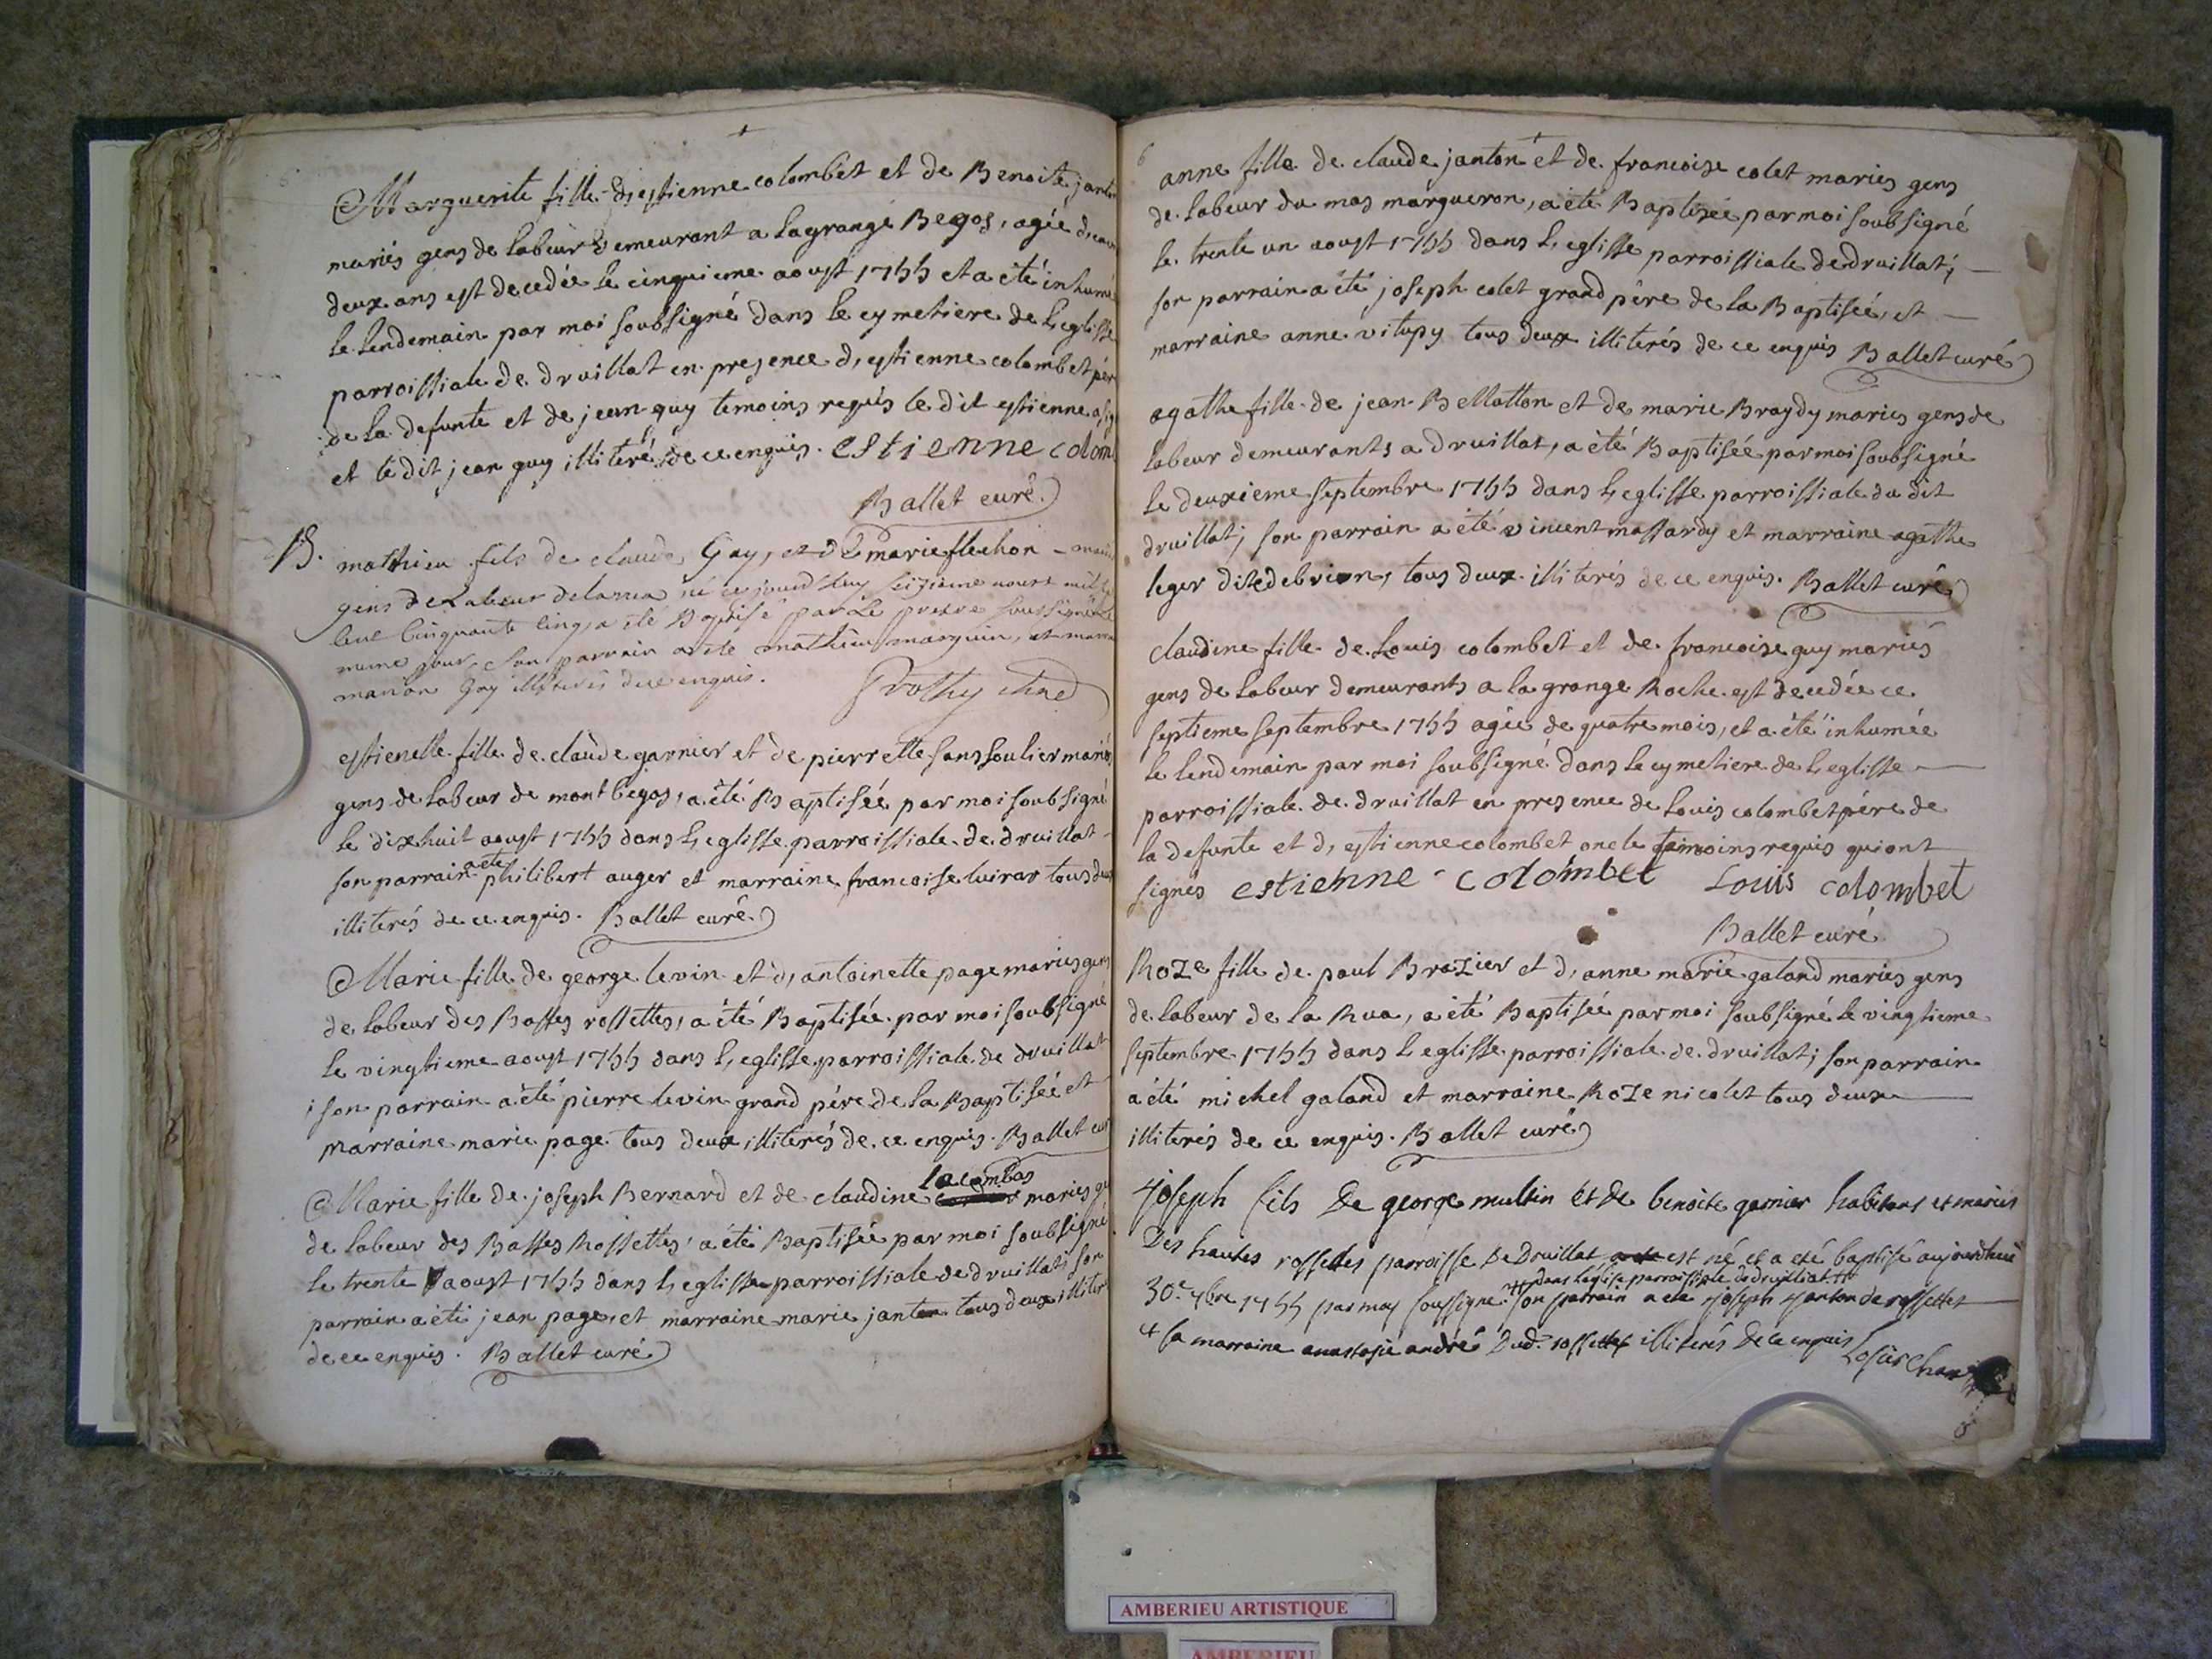 Marguerite fille d'estienne colombet et de Benoite
mariés gens de labeur demeurant a lagrange Begos, agée
deux ans est decedée le cinquieme aoust 1755 et a été inhumé
le lendemain par moi soubsigné dans le cymetiere de l'eglisse
parroissiale de druillat en presence d'estienne colombet pér
de la defunte et de jean guy temoins requis le dit estienne
et le dit jean guy illiteré de ce enquis. estienne colom
Ballet curé
B. mathieu fils de claude Guy, et de marie flechon
gens de Labeur delarua né ce jourd'huy seizieme aoust mil
cent cinquante cinq, a été Baptisé par Le pretre soussigné Le
meme jour, Son parrain a été mathieu marguin, et marr
marion Guy illiterés de ce enquis.
estienette fille de claude garnier et de pierrette sanssoulier mariés
gens de labeur de montbegos, a été Baptisée par moi soubsigné
le dixhuit aoust 1755 dans l'eglisse parroissiale de druillat
son parrain a été philibert auger et marraine francoise luirar tous deux
illiterés de ce enquis. Ballet curé
Marie fille de george levin et d'antoinette page mariés gens
de labeur des Basses rossettes, a été Baptisée par moi soubsigné
le vingtieme aoust 1755 dans l'eglisse parroissiale de druillat
; son parrain a été pierre levin grand pére de la Baptisée et
marraine marie page tous deux illiterés de ce enquis. Ballet cur
Marie fille de joseph Bernard et de claudine lacombas mariés ge
de labeur des Basses Rossettes, a été Baptisée par moi soubsigné
le trente aoust 1755 dans l'eglisse parroissiale de druillat; son
parrain a été jean page, et marraine marie janton tous deux illiter
de ce enquis. Ballet curé
6
anne fille de claude janton et de francoise colet mariés gens
de labeur du mas margueron, a été Baptisée par moi soubsigné
le trente un aoust 1755 dans l'eglisse parroissiale de druillat;
son parrain a été joseph colet grand pére de la Baptisée, et
marraine anne vitupy tous deux illiterés de ce enquis Ballet curé
agathe fille de jean Bellatton et de marie Braydy mariés gens de
labeur demeurants a druillat, a été Baptisée par moi soubsigné
le deuxieme septembre 1755 dans l'eglisse parroissiale du dit
druillat; son parrain a été vincent massardy et marraine agathe
leger dite debrion, tous deux illiterés de ce enquis. Ballet curé
claudine fille de Louis colombet et de francoise guy mariés
gens de labeur demeurants a la grange Roche est decedée ce
septieme septembre 1755 agée de quatre mois, et a été inhumée
le lendemain par moi soubsigné dans le cymetiere de l'eglisse
parroissiale de druillat en presence de Louis colombet pére de
la defunte et d'estienne colombet oncle temoins requis qui ont
signés estienne colombet Louis colombet
Ballet curé
Roze fille de paul Brazier et d'anne marie galand mariés gens
de labeur de la Rua, a été Baptisée par moi soubsigné le vingtieme
septembre 1755 dans l'eglisse parroissiale de druillat; son parrain
a été michel galand et marraine Roze nicolet tous deux
illiterés de ce enquis. Ballet curé
joseph fils De george multin et de benoite garnier habitans et mariés
Des hautes rossettes parroisse De Druillat est né et a eté baptisé aujourdhui
dans l'eglise parroissiale de druilliat
30e 7bre 1755 par moy soussigné. Son parrain a eté joseph janton de rossettes
et sa marraine anastasie andré Dud. rossettes illiterés De ce enquis
AMBERIEU ARTISTIQUE
AMBERIEU